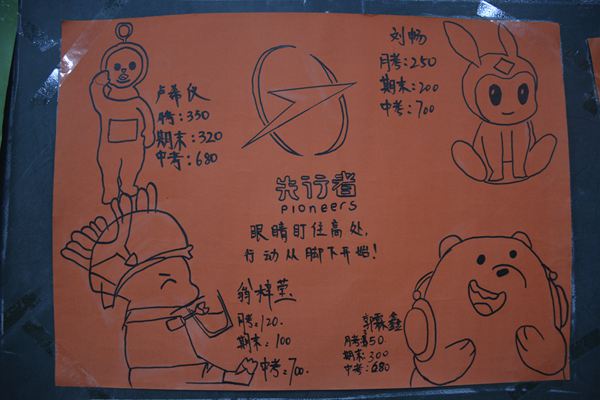 卢希仪
月考:350
期末:320
中考:680
刘畅
月考:250
期末:200
中考:700
先行者
Pioneers
眼睛盯住高处,
行动从脚下开始!
翁梓莹
月考:120.
期末:100
中考:700.
郭霖鑫
期末:300
中考:680